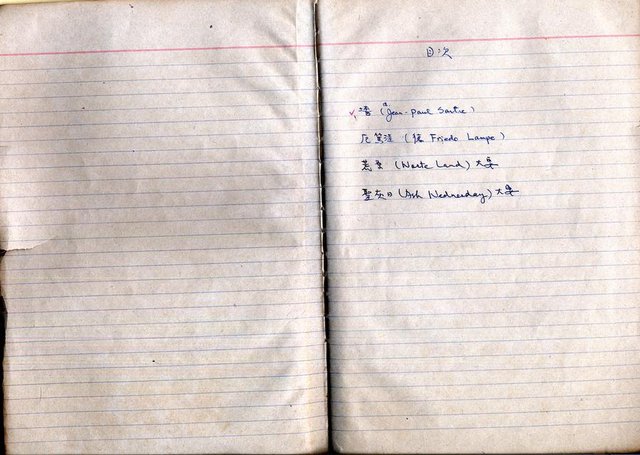 目次
牆 (Jean-Paul Sartre)
厄篤淮 (德 Friedo Lampe)
荒地 (Waste Land)
聖灰日 (Ash Wednesday)